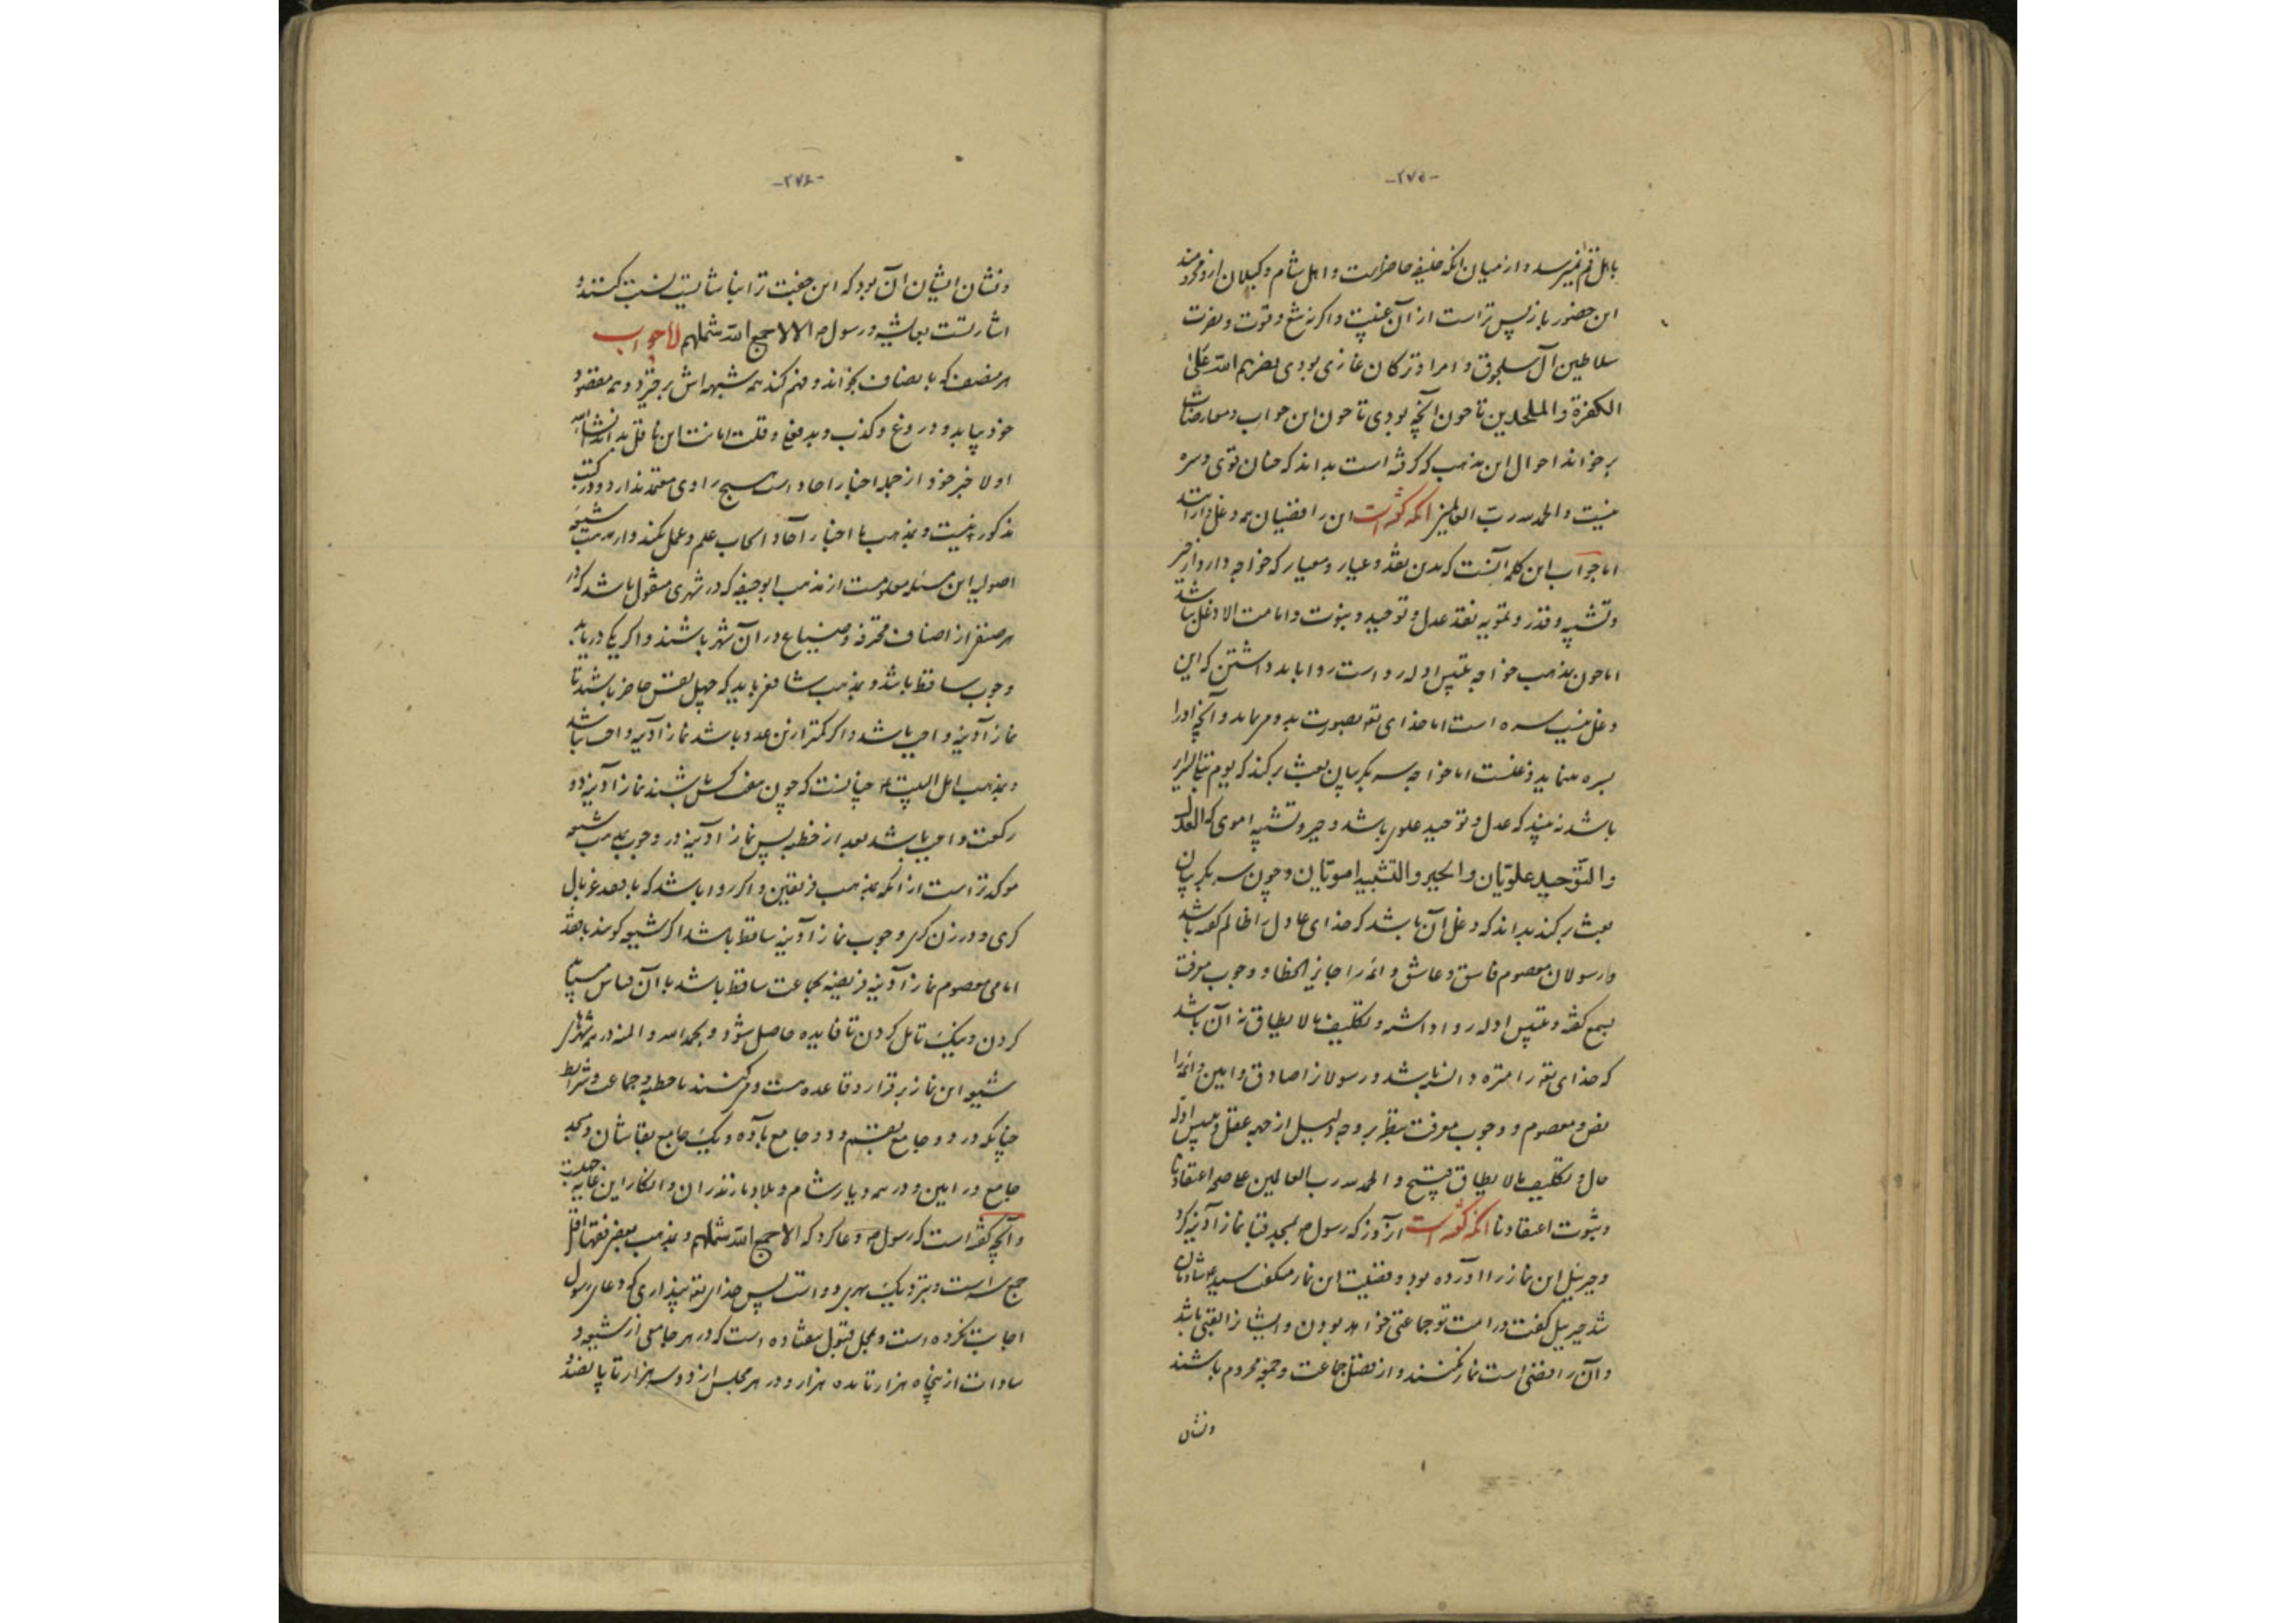 -۲۷۵-
باهل قم نمیرسد و از میان انکه خلیفه حاضرست و اهل شام و کیلان
این حضور باز پس تر است از آن غیبت و اکر نه تیغ و قوت و نصرت
سلاطین آل سلجوق و امراء ترکان غازی بودی نصرهم الله علی
الکفرة والملحدین تا خون آنچه بودی تا چون این جواب و معارضات
برخواند احوال این مذهب که کرفته است بداند که چنان قوی و سره
نیست والحمد لله رب العالمین آنکه گفته است این رافضیان همه دغل دارند
اما جواب این کلمه آنست که بدین نقد و عیار و معیار که خواجه دارد از جبر
و تشبیه و قدر و تمویه نقد عدل و توحید و نبوت و امامت الا دغل نباشد
اما چون بمذهب خواجه تلبیس ادله رواست روا باید داشتن که این
دغل نیست سره است اما خدای تعالی بصورت بد و می نماید و آنچه او را
سره مینماید دغلست اما خواجه سر بکریبان بعث برکند که یوم تبلی السرائر
باشد نه بیند که عدل و توحید علوی باشد و جبر و تشبیه اموی که العدل
والتوحید علویّان والجبر والتشبیه امویّان و چون سر بکریبان
بعث برکند بداند که دغل آن باشد که خدای عادل را ظالم کفته باشد
و رسولان معصوم فاسق و عاشق و ائمه را جایز الخطا و وجوب معرفت
بسمع کفته و تلبیس ادله روا داشته و تکلیف مالا یطاق نه آن باشد
که خدای تعالی را منزه دانسته باشد و رسولانرا صادق و امین و ائمه را
نص و معصوم و وجوب معرفت بنظر بر وجه دلیل از جهه عقل و تلبیس ادله
محال و تکلیف مالا یطاق قبیح والحمد لله رب العالمین علی صحة اعتقادنا
و ثبوت اعتقادنا آنکه گفته است آن روز که رسول ص بمسجد قبا نماز آدینه کرد
و جبرئیل این نماز را آورده بود و فضیلت این نماز میکفت سید ع شادمان
شد جبرئیل کفت در امت تو جماعتی خواهد بودن و ایشانرا لقبی باشد
و آن رافضی است نماز نکنند و از فضل جماعت و جمعه محروم باشند
و نشان
-۲۷۶-
و نشان ایشان آن بود که این جفت ترا بناشایست نسبت کنند و
اشارتست بعایشه و رسول ص الا لا جمع الله شملهم الجواب
هر منصف که بانصاف بخواند و فهم کند همه شبهه اش برخیزد و همه مقصود
خود بیابد و دروغ و کذب و بدفعلی و قلت امانت این ناقل بداند انشاالله
اولا خبر خود از جمله اخبار احاد است هیچ راوی معتمد ندارد و در کتب
مذکور نیست و بمذهب ما اخبار آحاد ایجاب علم و عمل نکند و از مذهب شیعه
اصولیه این مسئله معلومست از مذهب ابوحنیفه که در شهری مشغول باشد که در
هر صنفی از اصناف محترفه و صناع در آن شهر باشند و اکر یکی در نیاید
وجوب ساقط باشد و بمذهب شافعی باید که چهل نفس حاضر باشند تا
نماز آدینه واجب باشد و اکر کمتر ازین عدد باشد نماز آدینه واجب نباشد
و بمذهب اهل البیت ع چنانست که چون هفت کس باشند نماز آدینه دو
رکعت واجب باشد بعد از خطبه پس نماز آدینه در وجوب بمذهب شیعه
موکدتر است از آنکه بمذهب فریقین و اکر روا باشد که بافقد غربال
کری و درزن کری وجوب نماز آدینه ساقط باشد اکر شیعه کویند بافقد
امامی معصوم نماز آدینه فریضه بجماعت ساقط باشد با آن قیاس میباید
کردن و نیک تامل کردن تا فایده حاصل شود و بحمد الله و المنه در همه شهرهای
شیعه این نماز برقرار و قاعده هست و می کنند با خطبه و جماعت و شرایط
چنانکه در دو جامع بقم و دو جامع بآوه و یک جامع بقاشان و مسجد
جامع ورامین و در همه دیار شام و بلاد مازندران و انکار این غایت جهلست
و آنچه کفته است که رسول ص دعا کرد که الا لا جمع الله شملهم و بمذهب بعضی فقها اقل
جمع سه است و بنزدیک بهری دو است پس خدای تعالی پنداری که دعای رسول
اجابت نکرده است و بمحل قبول نیفتاده است که در هر جامعی از شیعه و
سادات از پنجاه هزار تا ده هزار و در هر مجلس از دو سه هزار تا پانصد و